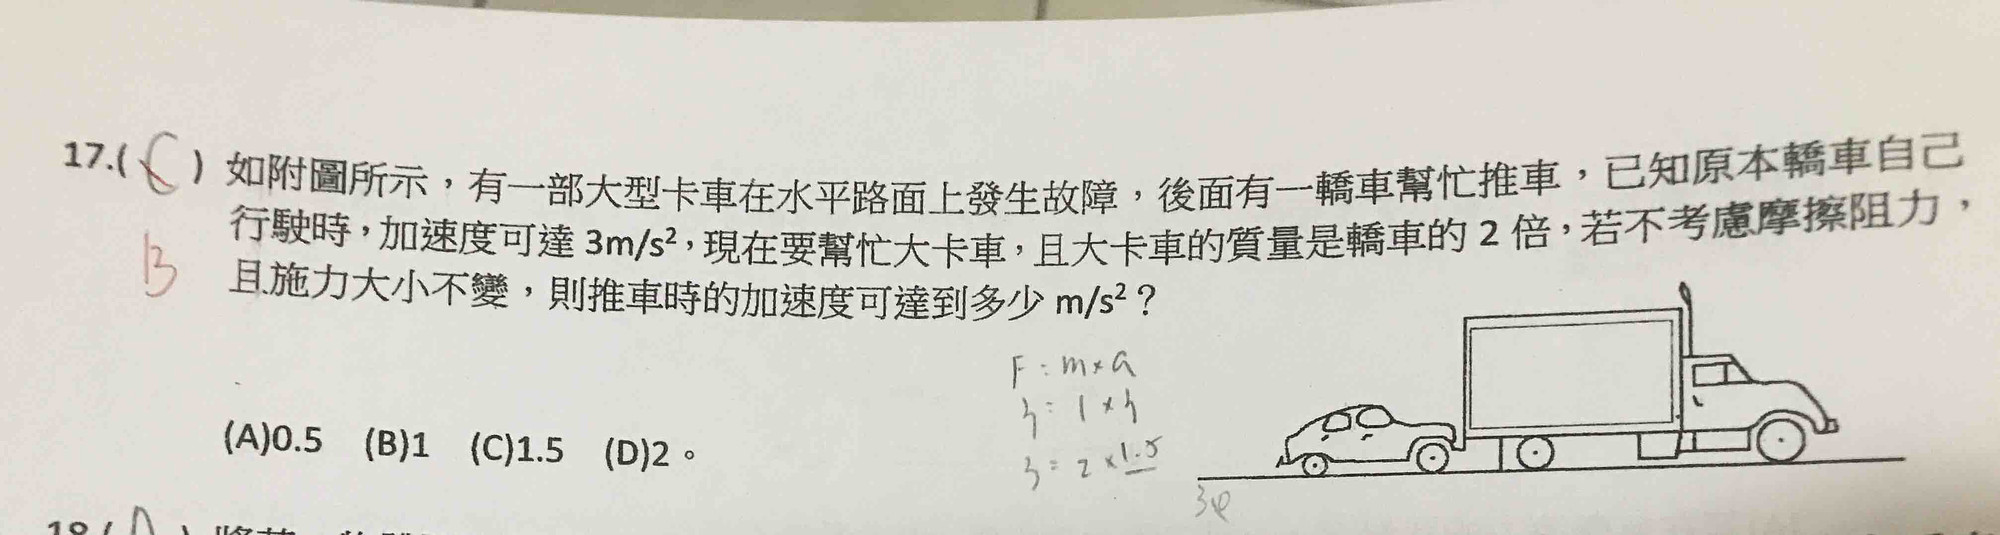 17.( C ) 如附圖所示，有一部大型卡車在水平路面上發生故障，後面有一轎車幫忙推車，已知原本轎車自己
B 行駛時，加速度可達 3m/s²，現在要幫忙大卡車，且大卡車的質量是轎車的 2 倍，若不考慮摩擦阻力，
且施力大小不變，則推車時的加速度可達到多少 m/s²？
F = m×a
3 = 1×3
3 = 2×1.5
(A)0.5 (B)1 (C)1.5 (D)2。
18